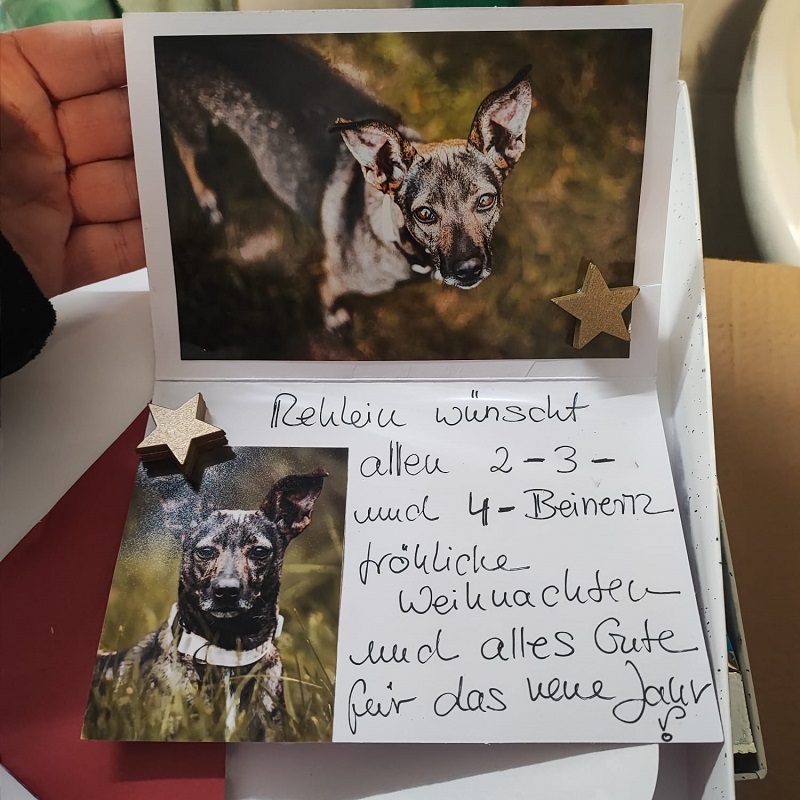 Rehlein wünscht
allen 2-3-
und 4-Beinern
fröhliche
Weihnachten
und alles Gute
für das neue Jahr!